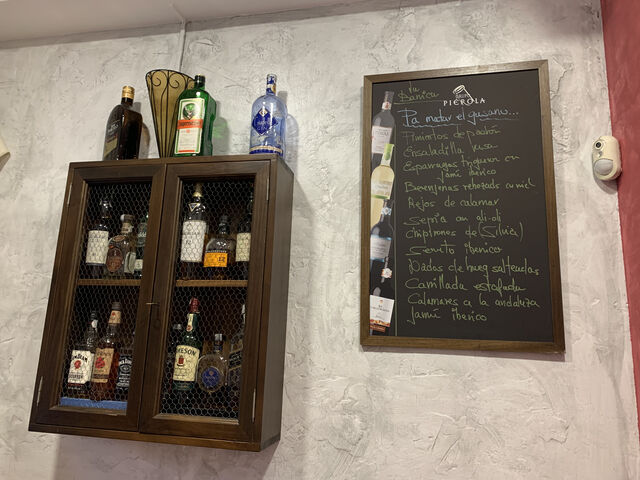 La
Barrica
PIÉROLA
Pa matar el gusano...
Pimientos de padrón
Ensaladilla rusa
Esparragos trigueros con
jamú iberico
Berenjenas rebozads cu miel
Rejos de calamar
Sepia cu ali-oli
Chipirones de (Silvia)
Secreto iberico
Habas de huerg salteadas
Carrillada estofada
Calamares a la andaluza
Jamú iberico
JIM BEAM
JAMESON
JACK DANIEL'S